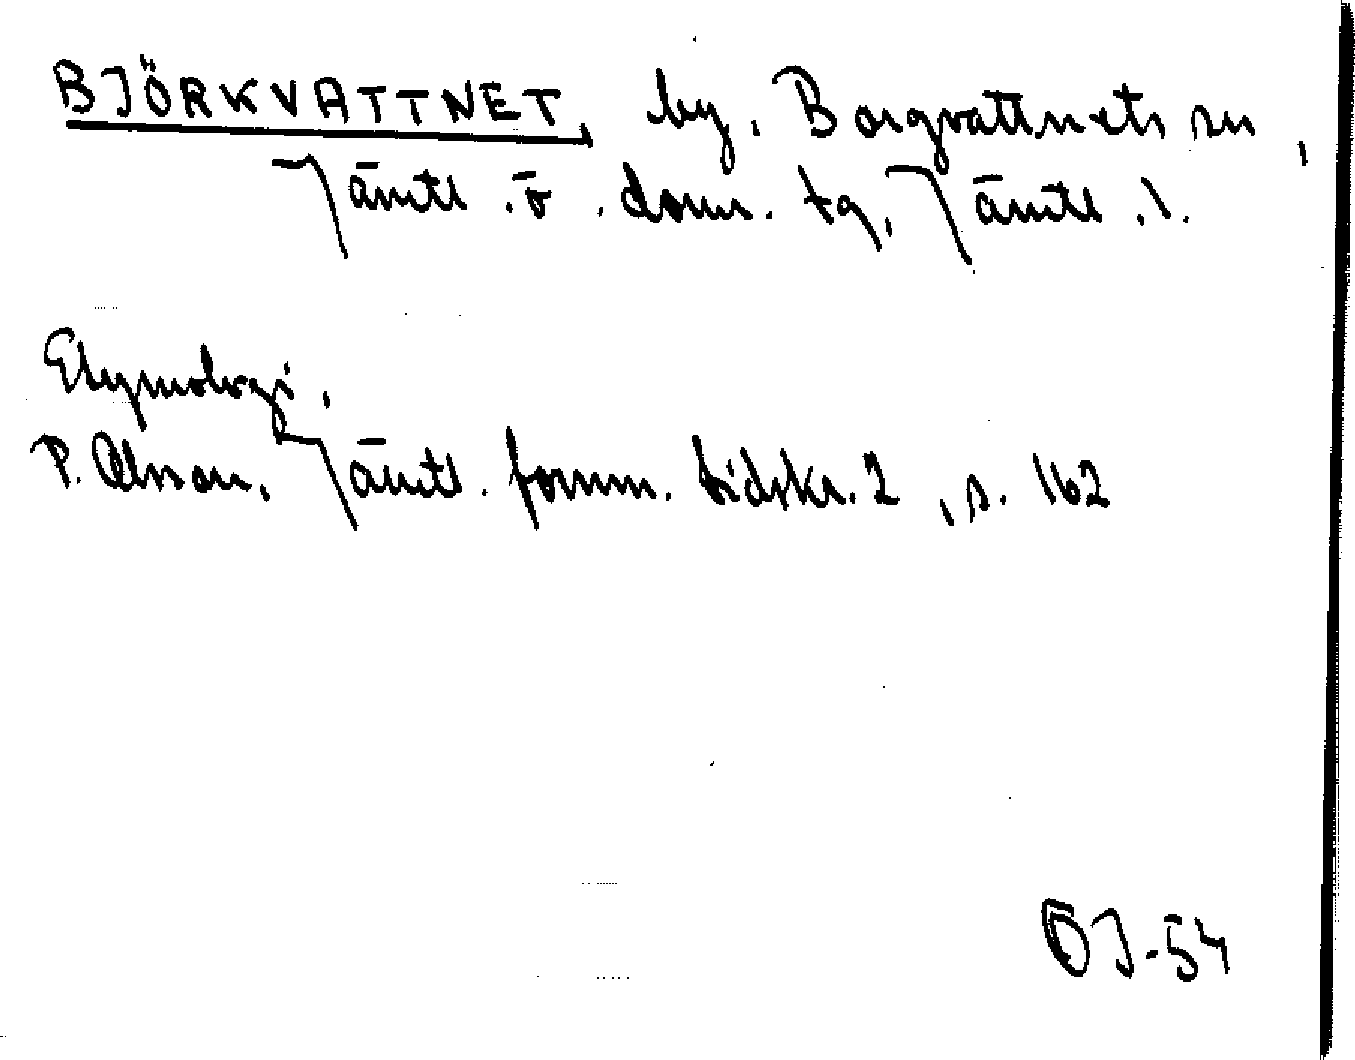 BJÖRKVATTNET, by, Borgvattnets sn,
Jämtl. ö. doms. tg, Jämtl. l.
Etymologi,
P. Olsson, Jämtl. fornm. tidskr. 2, s. 162
ÖJ-54